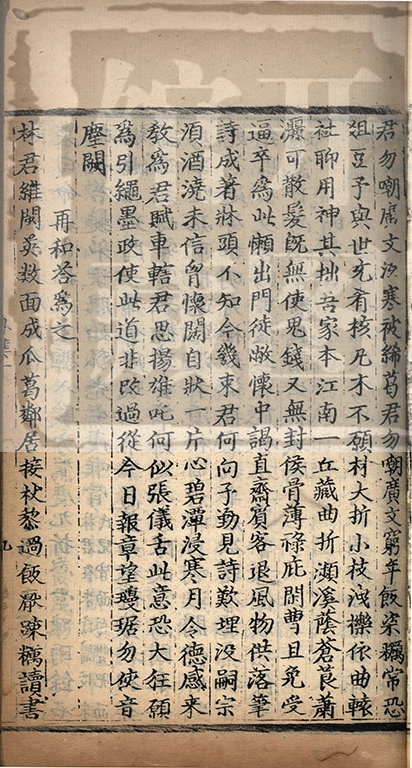 君勿嘲廣文沍寒被絺葛君勿嘲廣文窮年飯柒糲常恐
俎豆予與世充肴核凡木不願材大折小枝洩櫟依曲轅
社聊用神其拙吾家本江南一丘藏曲折瀨溪蔭蒼莨蕭
灑可散髮既無使鬼錢又無封侯骨薄祿庇閑曹且免受
逼卒為此懶出門徒敝懷中謁直齋賓客退風物供落筆
詩成著牀頭不知今幾束君何向予勤見詩歎埋沒嗣宗
須酒澆未信胷懷闊自狀一片心碧潭浸寒月令德感来
教為君賦車轄君思揚雄吒何似張儀舌此意恐大狂願
為引繩墨政使此道非改過從今日報章望瓊琚勿使音
塵闕
再和答為之
林君維閥英数面成瓜葛鄰居接杖藜過飯厭疎糲讀書
九